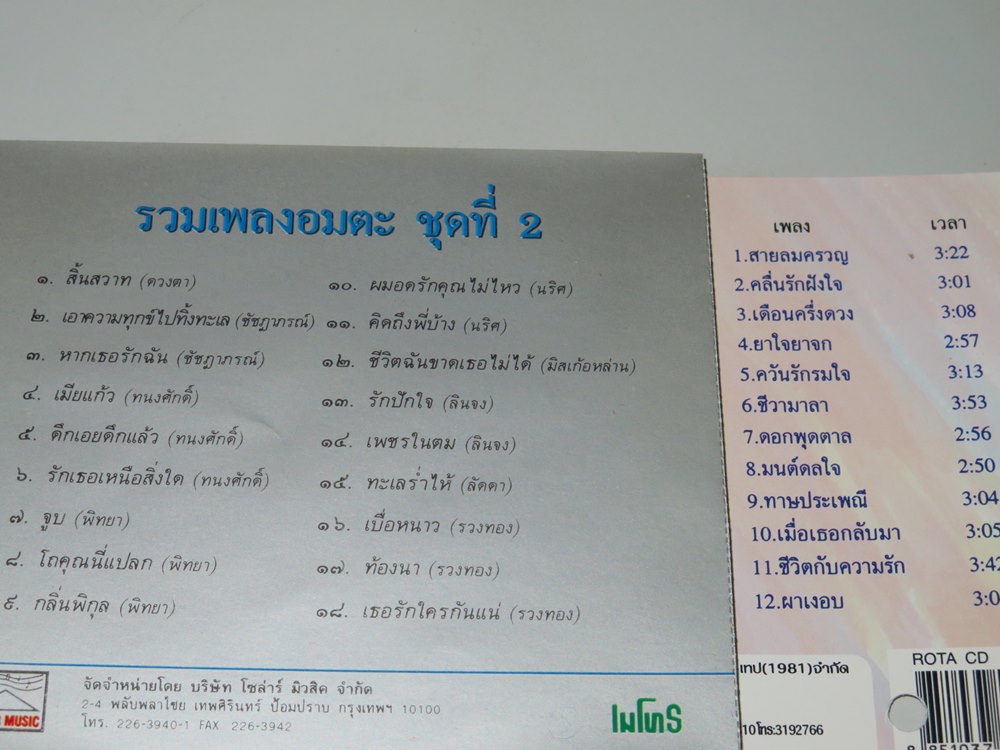 รวมเพลงอมตะ ชุดที่ 2
๑. สิ้นสวาท (ดวงตา)
๒. เอาความทุกข์ไปทิ้งทะเล (ชัชฎาภรณ์)
๓. หากเธอรักฉัน (ชัชฎาภรณ์)
๔. เมียแก้ว (ทนงศักดิ์)
๕. ดึกเอยดึกแล้ว (ทนงศักดิ์)
๖. รักเธอเหนือสิ่งใด (ทนงศักดิ์)
๗. จูบ (พิทยา)
๘. โถคุณนี่แปลก (พิทยา)
๙. กลิ่นพิกุล (พิทยา)
๑๐. ผมอดรักคุณไม่ไหว (นริศ)
๑๑. คิดถึงพี่บ้าง (นริศ)
๑๒. ชีวิตฉันขาดเธอไม่ได้ (มิสเก้อหล่าน)
๑๓. รักปักใจ (ลินจง)
๑๔. เพชรในตม (ลินจง)
๑๕. ทะเลร่ำไห้ (ลัดดา)
๑๖. เบื่อหนาว (รวงทอง)
๑๗. ท้องนา (รวงทอง)
๑๘. เธอรักใครกันแน่ (รวงทอง)
MUSIC
จัดจำหน่ายโดย บริษัท โซล่าร์ มิวสิค จำกัด
2-4 พลับพลาไชย เทพศิรินทร์ ป้อมปราบ กรุงเทพฯ 10100
โทร. 226-3940-1 FAX. 226-3942
เมโทร
เพลง เวลา
1.สายลมครวญ 3:22
2.คลื่นรักฝั่งใจ 3:01
3.เดือนครึ่งดวง 3:08
4.ยาใจยาจก 2:57
5.ควันรักรมใจ 3:13
6.ชีวามาลา 3:53
7.ดอกพุดตาล 2:56
8.มนต์ดลใจ 2:50
9.ทาษประเพณี 3:04
10.เมื่อเธอกลับมา 3:05
11.ชีวิตกับความรัก 3:42
12.ผาเงอบ 3:0
เทป(1981)จำกัด
10โทร:3192766
ROTA CD